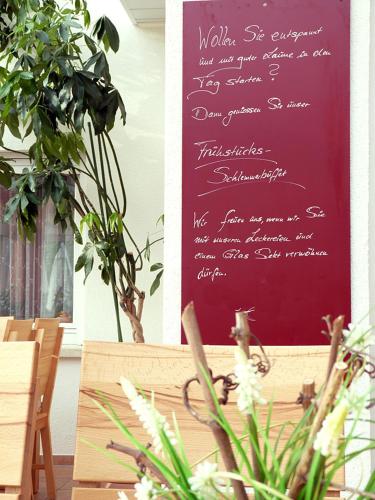 Wollen Sie entspannt
und mit guter Laune in den
Tag starten?
Dann geniessen Sie unser
Frühstücks-
Schlemmerbüffet
Wir freuen uns, wenn wir Sie
mit unseren Leckereien und
einem Glas Sekt verwöhnen
dürfen.